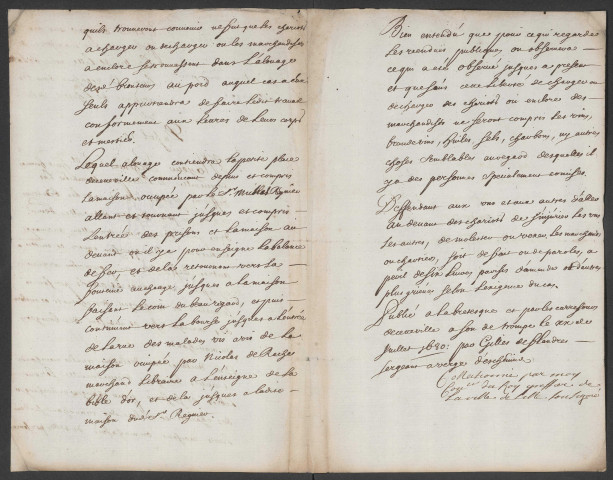 qu'ils trouveront convenir ne fut que les chariots
a charger ou descharger ou les marchandises
a encore se trouvassent dans l'alouage
desd. Brouteurs au pord auquel cas a eux
seuls appartiendra de faire ledit travail
conformement aux lettres de leurs corps
et mestier.
Lequel alouage contiendra la petite place
de cette ville commenchant depuis et compris
la maison occupée par le Sr. Regnier
allant et tournant jusques et compris
l'entrée des prisons et la maison au
devant ou il y a pour enseigne la balance
de fer, et de la retournant vers la
jusques a la maison
faisant le coin du beau regard, et puis
continuant vers la bourse jusques a l'entrée
de la rue des malades vis avis de la
maison occupée par Nicolas de Rache
marchand libraire a l'enseigne de la
bible d'or, et de la jusques a ladite
maison dud. Sr. Regnier.
Bien entendu que pour ce qui regarde
les vendues publiques on observera
ce qui a esté observé jusques a present
et que sans cette liberté de charger ou
descharger des chariots ou autres des
marchandises ne seront compris les vins,
brandevins, huiles, sels, charbons, ny autres
choses semblables au regard desquelles il
y a des personnes specialement commises.
Deffendant aux uns et aux autres d'aller
au devant des chariots de s'injurier les uns
les autres, de molester ou vexer les marchands
ou chartiers, soit de fait ou de paroles, a
peril de six livres parisis d'amende ou d'autre
plus griefve selon l'exigence du cas.
Publié a la bretesque et par les carrefours
de cette ville a son de trompe le xx de
Juillet 1680: par Gilles de flandres
sergeant a verge d'eschevins
Collationné par moy
Conser. du Roy greffier de
la ville de Lille soussigné